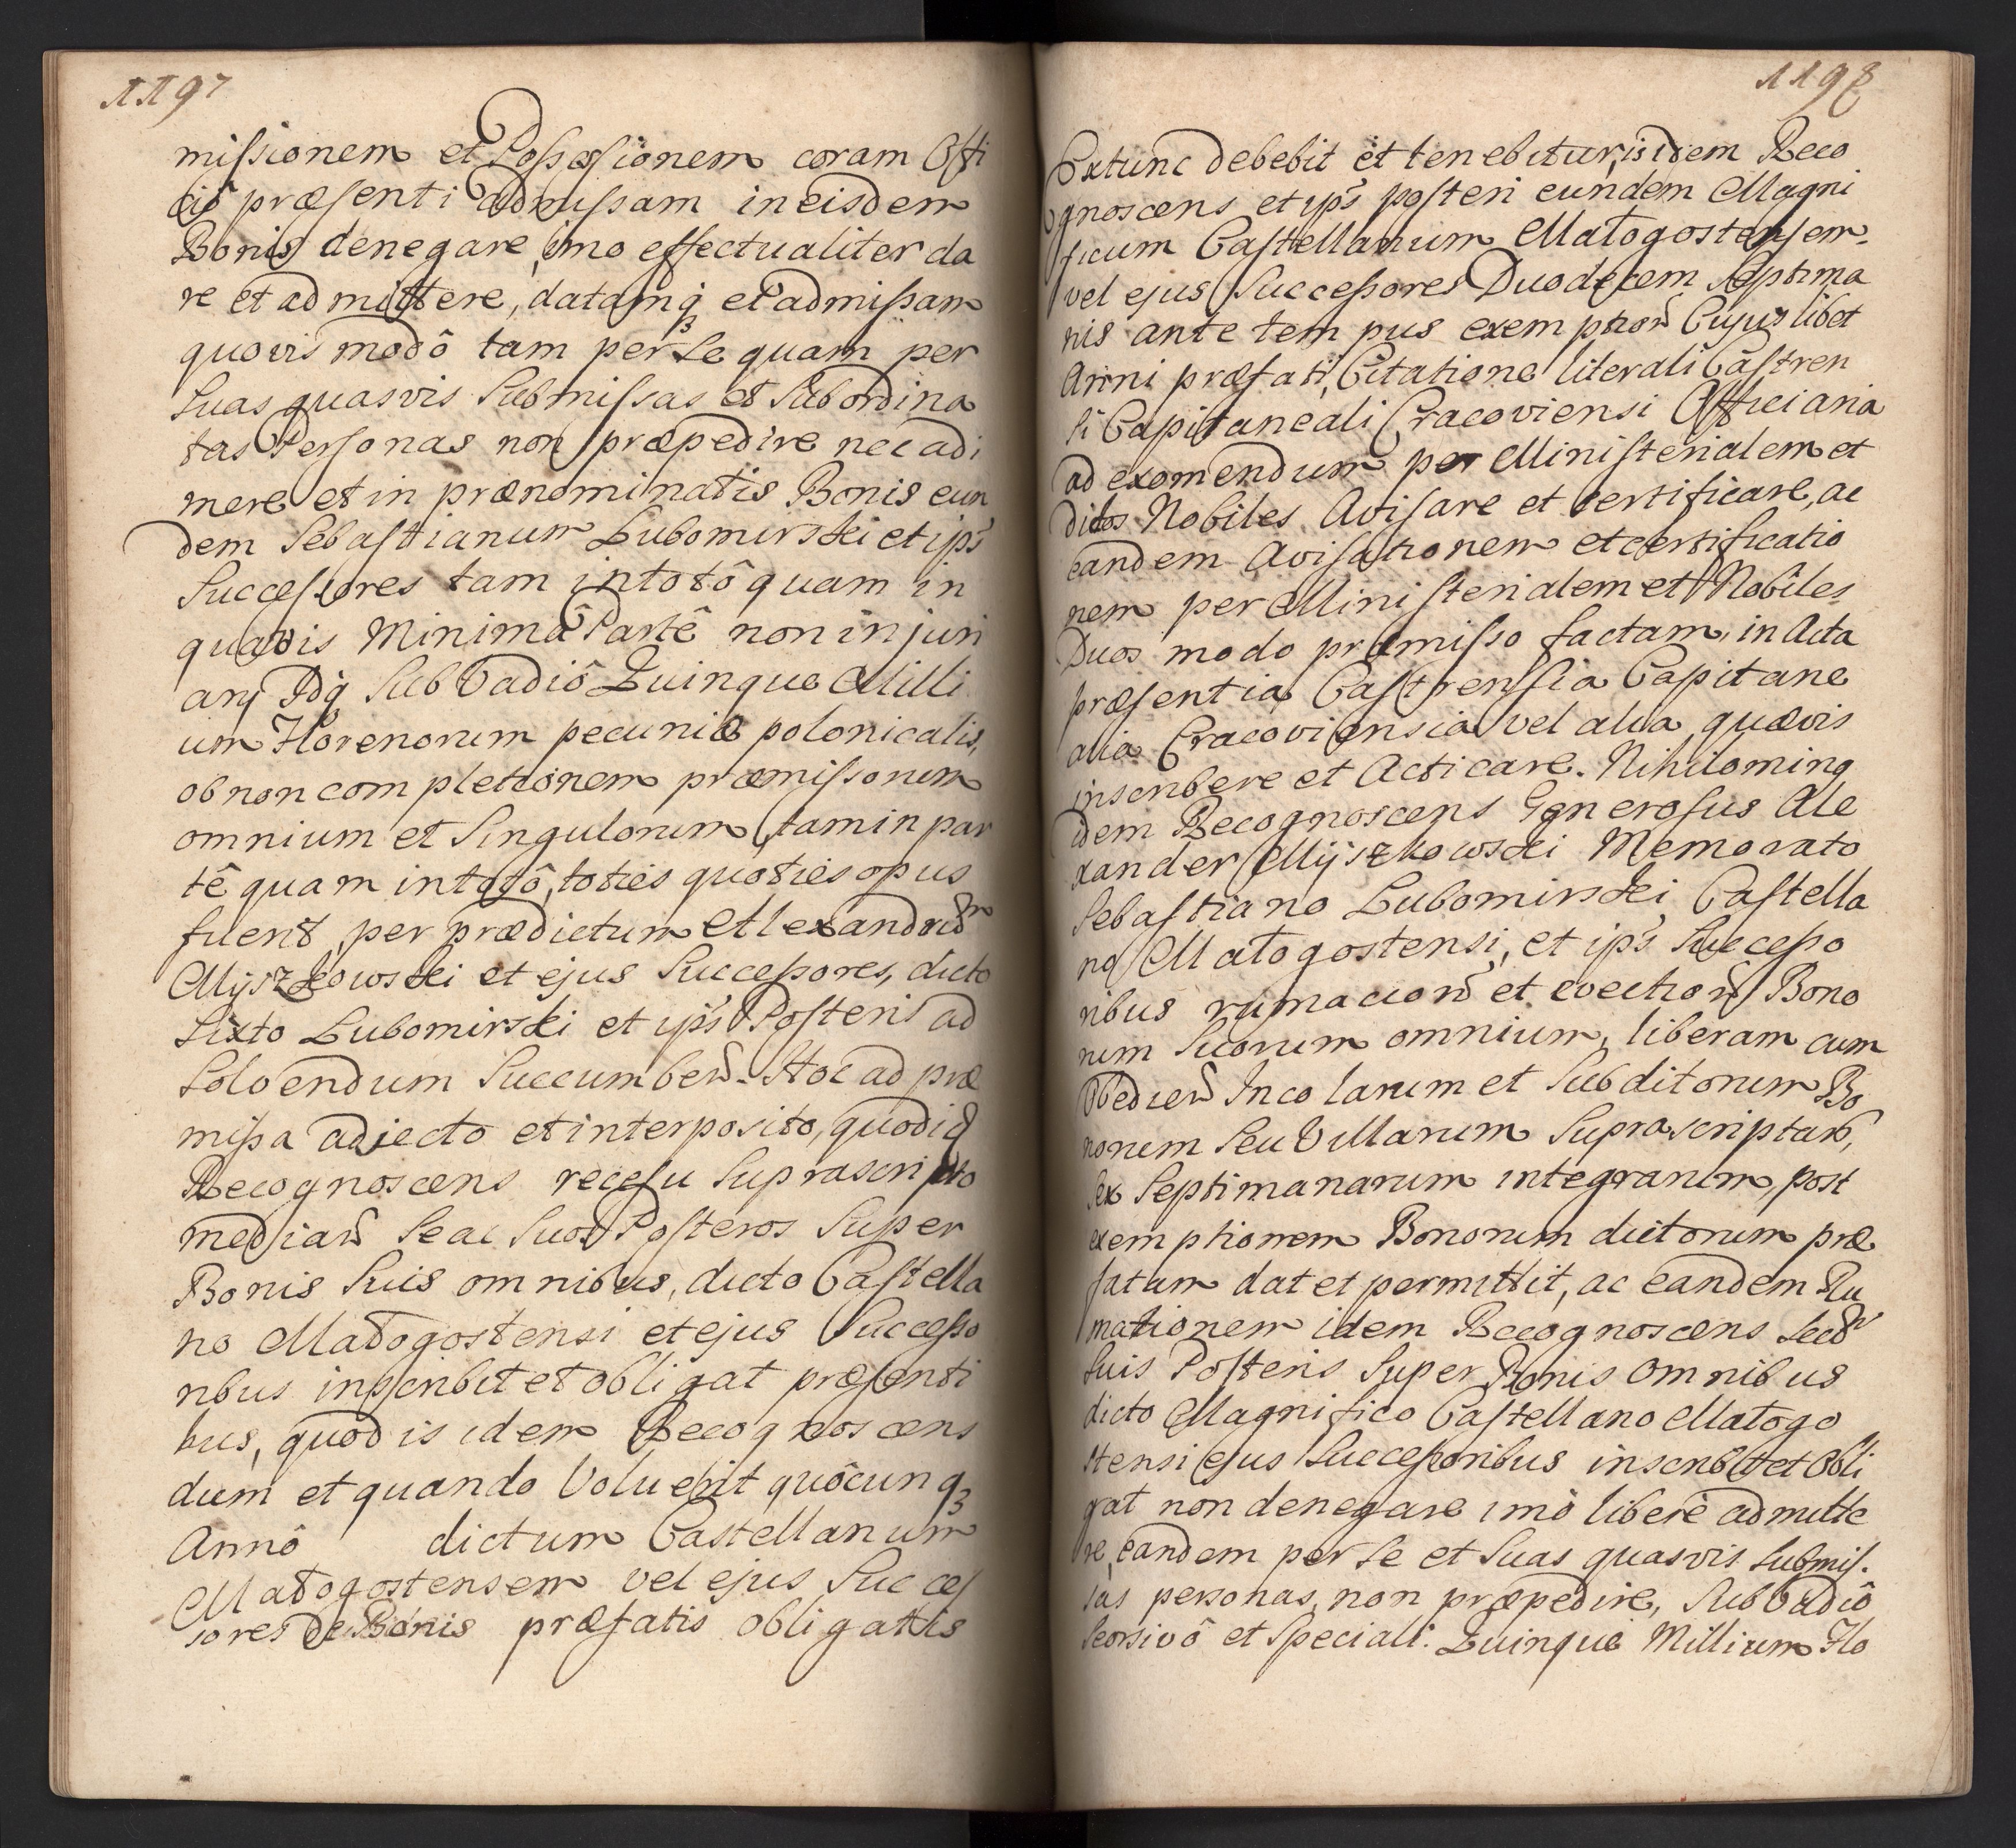 1197
missionem et Possessionem coram Offi
cio præsenti admissam in eisdem
Bonis denegare, imo effectualiter da
re et admittere, datamq; et admissam
quovis modô tam per se quam per
Suas quasvis Submissas et Subordina
tas Personas non præpedire nec adi
mere et in prænominatis Bonis eun
dem Sebastianum Lubomirski et ips
Successores tam in totô quam in
quavis Minimâ Partê non injuri
arj Idq Sub Vadiô Quinque Milli
um Florenorum pecuniæ polonicalis,
ob non completionem præmissorum
omnium et Singulorum, tam in par
tê quam in totô, toties quoties opus
fuerit, per prædictum Alexandrum
Myszkowski et ejus Successores, dicto
Sixto Lubomirski et ips Posteris ad
Solvendum Succumben. Hoc ad præ
missa adjecto et interposito, quod id
Recognoscens recessu Suprascripto
median Se ac Suos Posteros Super
Bonis Suis omnibus, dicto Castella
no Małogostensi et ejus Successo
ribus inscribit et obligat præsenti
bus, quod is idem Recognoscens
dum et quando Voluerit quôcunq3
Annô dictum Castellanum
Małogostensem vel ejus Succes
sores de Bonis præfatis obligatis
1198
Extunc debebit et tenebitur, is idem Reco
gnoscens et ips posteri eundem Magni
ficum Castellanum Małogostensem
vel ejus Successores Duodecem Septima
nis ante tempus exemption Cujuslibet
Anni præfati, Citatione literali Castren
si Capitaneali Cracoviensi Officiana
ad exomendum per Ministerialem et
ditos Nobiles Avisare et certificare, ac
eandem Avisationem et certificatio
nem per Ministerialem et Nobiles
Duos modo præmisso factam, in Acta
præsentia Castrensia Capitane
alia Cracoviensia vel alia quævis
inscribere et Acticare. Nihilominq
idem Recognoscens Generosus Ale
xander Myszkowski Memorato
Sebastiano Lubomirski Castella
no Małogostensi, et ips Successo
ribus rumacion et evection Bono
rum Suorum omnium, liberam cum
Obedien Incolarum et Subditorum Bo
norum Seu Villarum Suprascriptar,
Sex Septimanarum integrarum, post
exemptionem Bonorum dictorum præ
fatam dat et permittit, ac eandem Ru
mationem idem Recognoscens Secum
Suis Posteris Super Bonis omnibus
dicto Magnifico Castellano Małogo
stensi ejus Successoribus inscribit et obli
gat non denegare imò liberè admitte
re, eandem per Se et Suas quasvis Submis.
sas personas, non præpedire, Sub Vadiô
Seorsivô et Speciali. Quinque Millium Flo